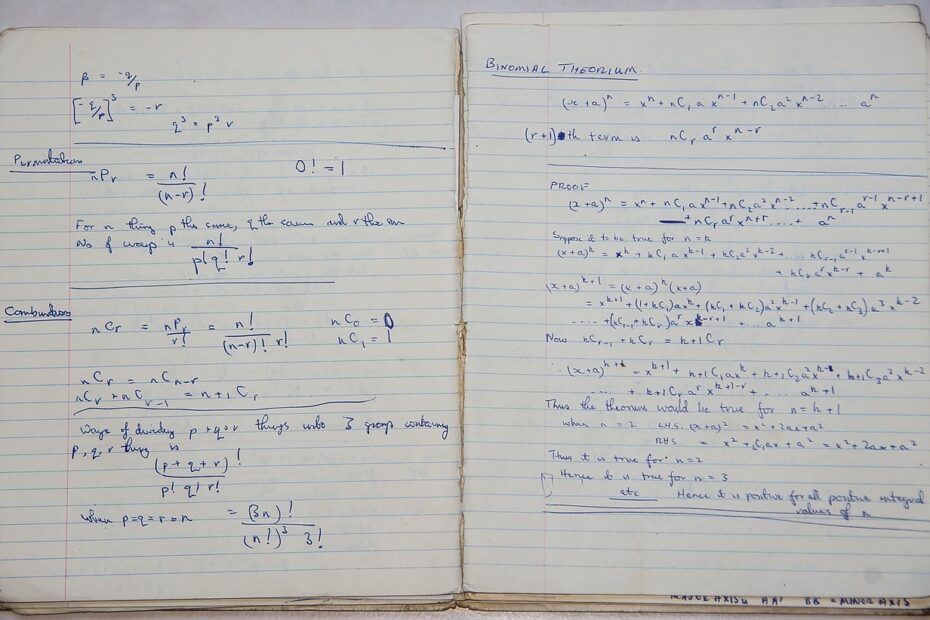 β = -q/p
[-q/p]³ = -r
q³ = p³ r
Permutations
nPr = n! / (n-r)!    0! = 1
For n things p the same, q the same and r the
No of ways is n! / p! q! r!
Combinations
nCr = nPr / r! = n! / (n-r)! r!    nC₀ = 0
nC₁ = 1
nCr = nCn-r
nCr + nCr-1 = n+1Cr
Ways of dividing p+q+r things into 3 groups containing
p, q, r things is
(p+q+r)! / p! q! r!
when p=q=r=n = (3n)! / (n!)³ 3!
BINOMIAL THEORIUM
(x+a)ⁿ = xⁿ + nC₁ a xⁿ⁻¹ + nC₂ a² xⁿ⁻² .... aⁿ
(r+1)th term is nCr aʳ xⁿ⁻ʳ
PROOF
(x+a)ⁿ = xⁿ + nC₁ a xⁿ⁻¹ + nC₂ a² xⁿ⁻² .....+ nCr-1 aʳ⁻¹ xⁿ⁻ʳ⁺¹
+ nCr aʳ xⁿ⁺ʳ ....+ aⁿ
Suppose it to be true for n=k
(x+a)ᵏ = xᵏ + kC₁ a xᵏ⁻¹ + kC₂ a² xᵏ⁻² + ..... kCr-1 aʳ⁻¹ xᵏ⁻ʳ⁺¹
+ kCr aʳ xᵏ⁻ʳ + aᵏ
(x+a)ᵏ⁺¹ = (x+a)ᵏ (x+a)
= xᵏ⁺¹ + (1+kC₁) a xᵏ + (kC₁ + kC₂) a² xᵏ⁻¹ + (kC₂ + kC₃) a³ xᵏ⁻²
..... + (kCr-1 + kCr) aʳ xᵏ⁻ʳ⁺¹ + ... aᵏ⁺¹
Now kCr-1 + kCr = k+1Cr
(x+a)ᵏ⁺¹ = xᵏ⁺¹ + k+1C₁ a xᵏ + k+1C₂ a² xᵏ⁻¹ + k+1C₃ a³ xᵏ⁻²
.... + k+1Cr aʳ xᵏ⁺¹⁻ʳ + .... aᵏ⁺¹
Thus the theorium would be true for n=k+1
when n=2 L.H.S. (x+a)² = x² + 2ax + a²
RHS = x² + 2C₁ ax + a² = x² + 2ax + a²
Thus it is true for n=2
Hence it is true for n=3
etc Hence it is positive for all positive integral
values of n
MAJOR AXIS AA' BB' = MINOR AXIS